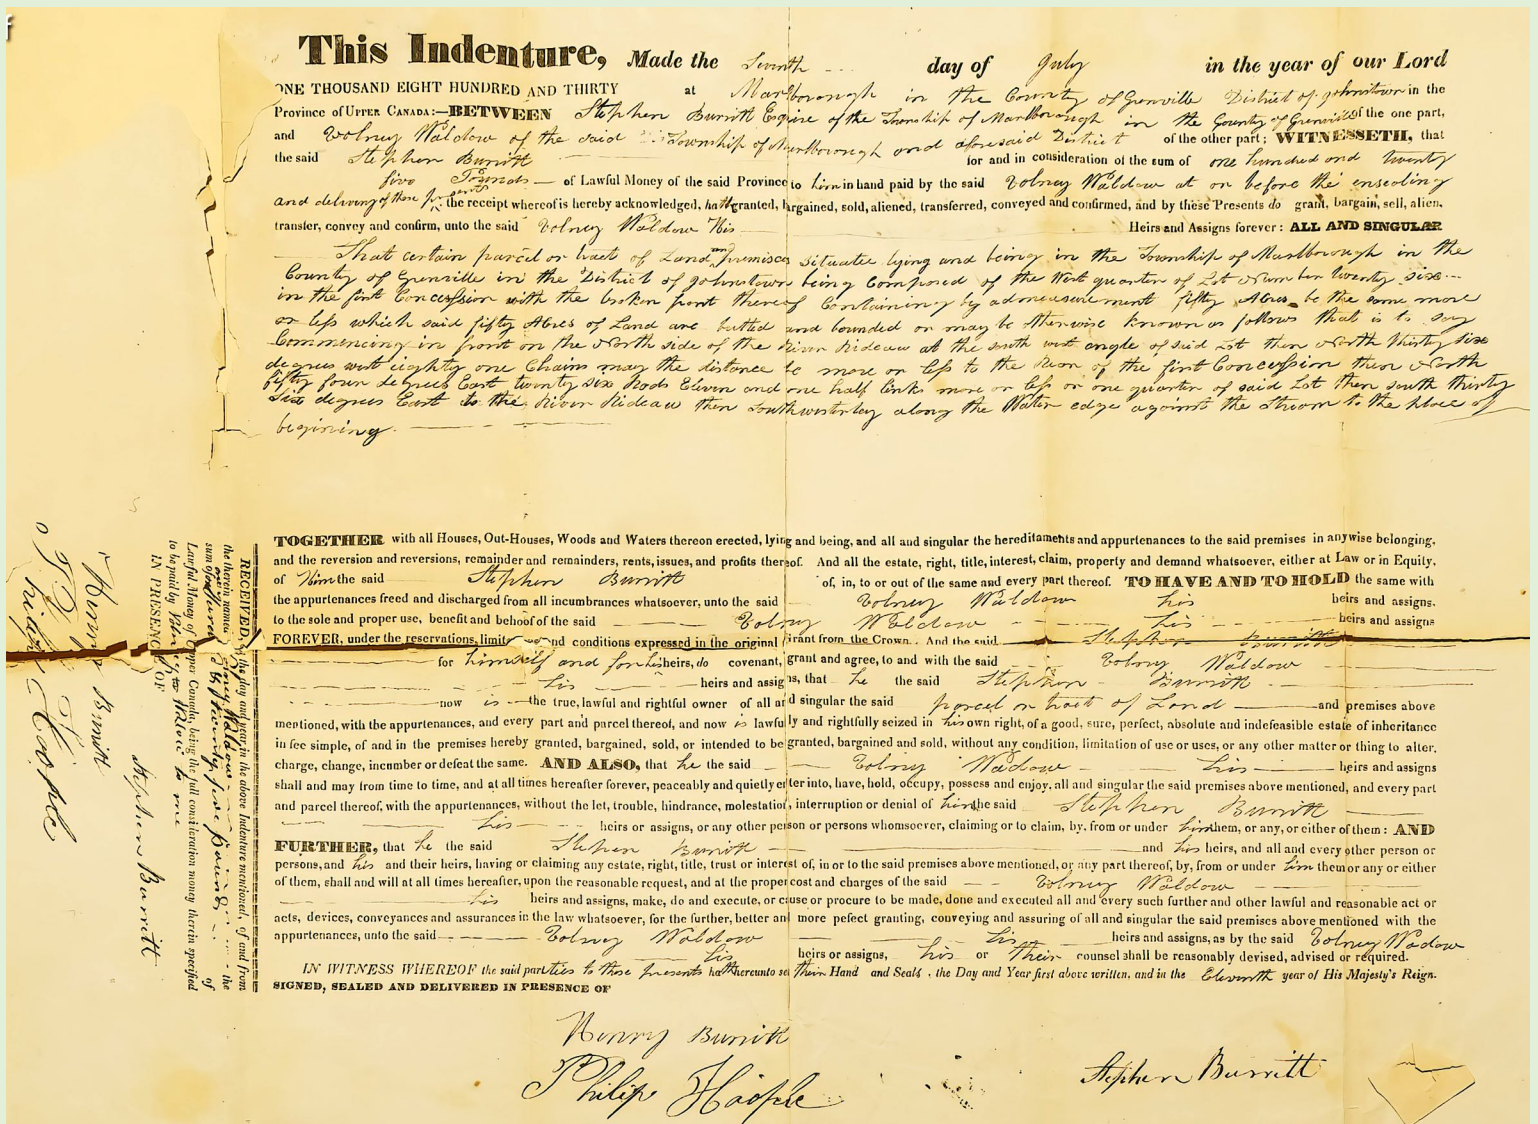 This Indenture, Made the Seventh day of July in the year of our Lord
ONE THOUSAND EIGHT HUNDRED AND THIRTY at Marlborough in the County of Grenville District of Johnstown in the
Province of UPPER CANADA:—BETWEEN Stephen Burritt Esquire of the Township of Marlborough in the County of Grenville of the one part,
and Volney Waldow of the said Township of Marlborough and aforesaid District of the other part; WITNESSETH, that
the said Stephen Burritt for and in consideration of the sum of one hundred and twenty
five Pounds — of Lawful Money of the said Province to him in hand paid by the said Volney Waldow at or before the ensealing
and delivery of these presents the receipt whereof is hereby acknowledged, hath granted, bargained, sold, aliened, transferred, conveyed and confirmed, and by these Presents do grant, bargain, sell, alien,
transfer, convey and confirm, unto the said Volney Waldow His Heirs and Assigns forever: ALL AND SINGULAR
That certain parcel or tract of Land and premises situate lying and being in the Township of Marlborough in the
County of Grenville in the District of Johnstown being Composed of the West quarter of Lot Number twenty six
in the first Concession with the broken front thereof Containing by admeasurement fifty Acres be the same more
or less which said fifty Acres of Land are butted and bounded or may be otherwise known as follows that is to say
Commencing in front on the North side of the River Rideau at the south west angle of said Lot then North thirty six
degrees west eighty one Chains may the distance be more or less to the Rear of the first Concession then North
fifty four degrees East twenty six Rods Eleven and one half links more or less or one quarter of said Lot then south thirty
Six degrees East to the River Rideau then Southwesterley along the Water edge against the Stream to the place of
begining.
TOGETHER with all Houses, Out-Houses, Woods and Waters thereon erected, lying and being, and all and singular the hereditaments and appurtenances to the said premises in anywise belonging,
and the reversion and reversions, remainder and remainders, rents, issues, and profits thereof. And all the estate, right, title, interest, claim, property and demand whatsoever, either at Law or in Equity,
of Him the said Stephen Burritt of, in, to or out of the same and every part thereof. TO HAVE AND TO HOLD the same with
the appurtenances freed and discharged from all incumbrances whatsoever, unto the said Volney Waldow his heirs and assigns.
to the sole and proper use, benefit and behoof of the said Volney Waldow his heirs and assigns
FOREVER, under the reservations, limit and conditions expressed in the original Grant from the Crown. And the said Stephen Burritt
for himself and for his heirs, do covenant, grant and agree, to and with the said Volney Waldow
his heirs and assigns, that he the said Stephen Burritt
now is the true, lawful and rightful owner of all and singular the said parcel or tract of Land and premises above
mentioned, with the appurtenances, and every part and parcel thereof, and now is lawfully and rightfully seized in his own right, of a good, sure, perfect, absolute and indefeasible estate of inheritance
in fee simple, of and in the premises hereby granted, bargained, sold, or intended to be granted, bargained and sold, without any condition, limitation of use or uses, or any other matter or thing to alter,
charge, change, incumber or defeat the same. AND ALSO, that he the said Volney Waldow his heirs and assigns
shall and may from time to time, and at all times hereafter forever, peaceably and quietly enter into, have, hold, occupy, possess and enjoy, all and singular the said premises above mentioned, and every part
and parcel thereof, with the appurtenances, without the let, trouble, hindrance, molestation, interruption or denial of him the said Stephen Burritt
his heirs or assigns, or any other person or persons whomsoever, claiming or to claim, by, from or under him them, or any, or either of them: AND
FURTHER, that he the said Stephen Burritt and his heirs, and all and every other person or
persons, and his and their heirs, having or claiming any estate, right, title, trust or interest of, in or to the said premises above mentioned, or any part thereof, by, from or under him them or any or either
of them, shall and will at all times hereafter, upon the reasonable request, and at the proper cost and charges of the said Volney Waldow
his heirs and assigns, make, do and execute, or cause or procure to be made, done and executed all and every such further and other lawful and reasonable act or
acts, devices, conveyances and assurances in the law whatsoever, for the further, better and more pefect granting, conveying and assuring of all and singular the said premises above mentioned with the
appurtenances, unto the said Volney Waldow his heirs and assigns, as by the said Volney Wadow
his heirs or assigns, his or their counsel shall be reasonably devised, advised or required.
IN WITNESS WHEREOF the said parties to these presents hath hereunto set their Hand and Seals, the Day and Year first above written, and in the Eleventh year of His Majesty's Reign.
SIGNED, SEALED AND DELIVERED IN PRESENCE OF
Henry Burritt
Philip Hoople
Stephen Burritt
RECEIVED, the day and year in the above Indenture mentioned, of and from
the therein named Volney Waldow the
sum of one hundred & twenty five pounds of
Lawful Money of Upper Canada, being the full consideration money therein specified
to be paid by Volney Waldow to me
IN PRESENCE OF
Stephen Burritt
Henry Burritt
Philip Hoople